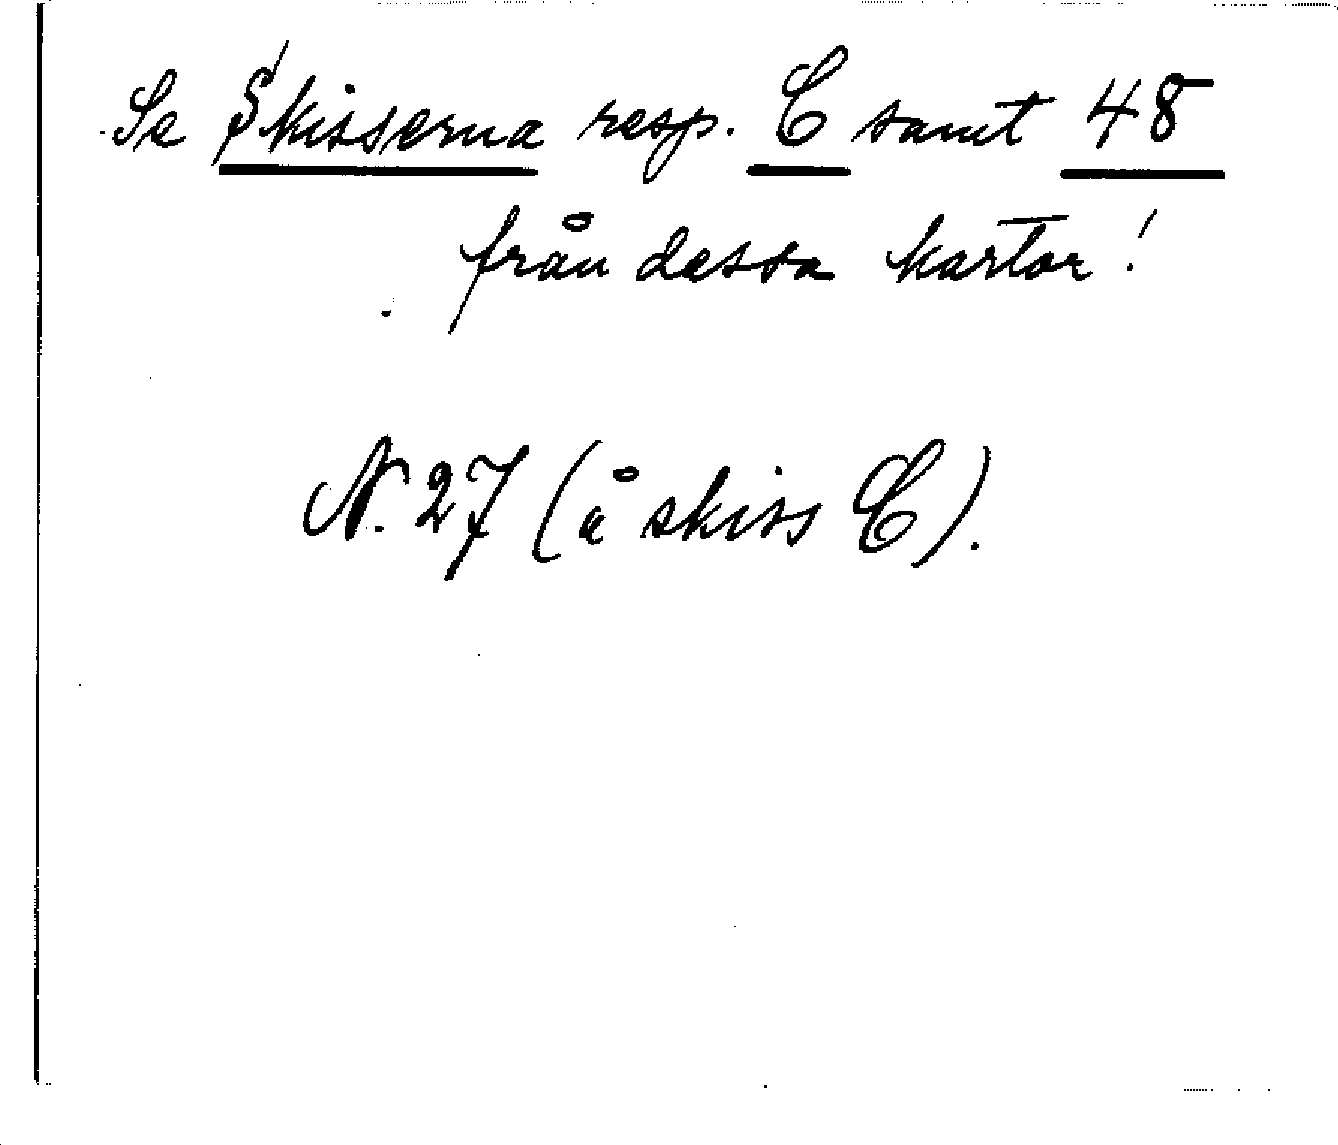 Se Skisserna resp. C samt 48
från dessa kartor!
N. 27 (å skiss C).